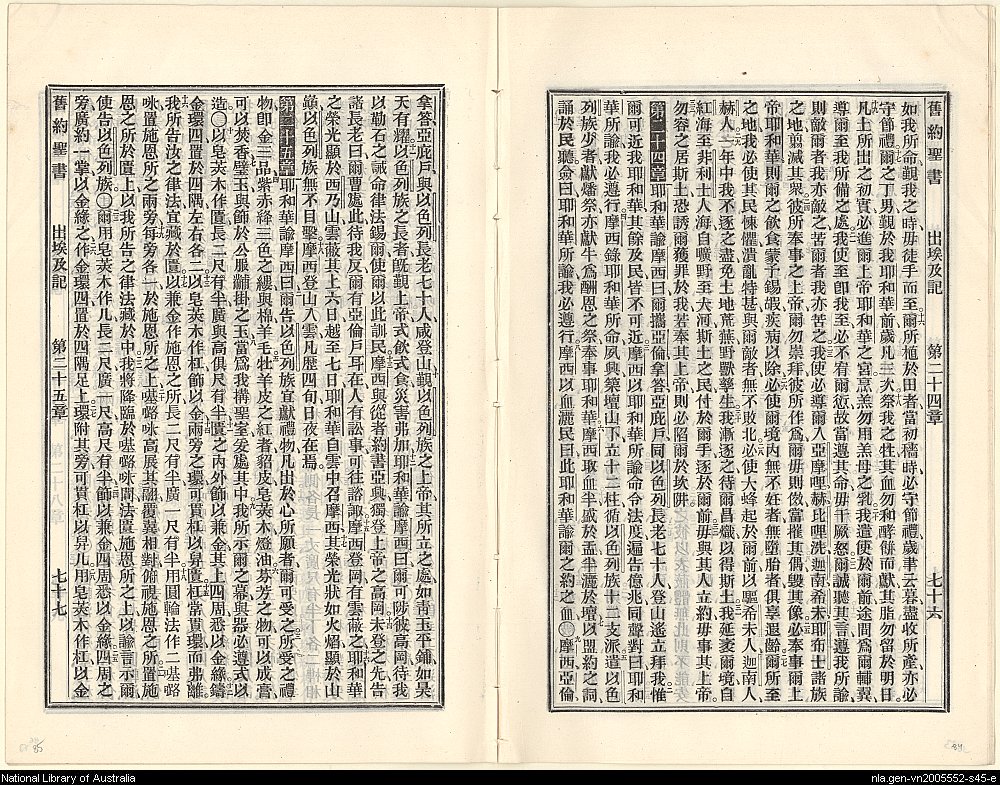 舊約聖書 出埃及記 第二十四章 七十六
如我所命覲我之時毋徒手而至爾所植於田者當初穡時必守節禮歲聿云暮盡收所產亦必
守節禮爾之丁男覲於我耶和華前歲凡三次祭我之牲其血勿和酵餅而獻其脂勿留於明日
凡土所出之初實必進爾上帝耶和華之宮烹羔勿用羔母之乳我遣使於爾前途間爲爾輔翼
導爾至我所備之處我使至卽我至必不宥爾愆故當遵其命毋干厥怒爾誠聽其言遵我所諭
則敵爾者我亦敵之苦爾者我亦苦之我使必導爾入亞摩哩赫比哩洗迦南希未耶布士諸族
之地翦滅其衆彼所奉事之上帝爾勿崇拜彼所作爲爾毋則傚當摧其偶毀其像必奉事爾上
帝耶和華則爾之飲食蒙予錫嘏疾病以除必使爾境內無不妊者無墮胎者俱享遐齡爾所至
之地我必使其民悚懼潰亂特甚與爾敵者無不敗北必使大蜂起於爾前以驅希未人迦南人
赫人一年中我不逐之盡免土地荒蕪野獸孳生我漸逐之待爾昌熾以得斯土我延袤爾境自
紅海至非利士人海自曠野至大河斯土之民付於爾手逐於爾前毋與其人立約毋事其上帝
勿容之居斯土恐誘爾獲罪於我若奉其上帝則必陷爾於坎阱
第二十四章 耶和華諭摩西曰爾攜亞倫拿答亞庇戶同以色列長老七十人登山遙立拜我惟
爾可近我耶和華其餘及民皆不可近摩西以耶和華所諭命令法度遍告億兆同聲對曰耶和
華所諭我必遵行摩西錄耶和華所命夙興築壇山下立十二柱循以色列族十二支派遣以色
列族少者獻燔祭亦獻牛爲酬恩之祭奉事耶和華摩西取血半盛於盂半灑於壇以盟約之詞
誦於民聽僉曰耶和華所諭我必遵行摩西以血灑民曰此耶和華諭爾之約之血〇摩西亞倫
拿答亞庇戶與以色列長老七十人咸登山覲以色列族之上帝其所立之處如靑玉平鋪如昊
天有耀以色列族之長者旣覲上帝式飲式食災害弗加耶和華諭摩西曰爾可陟彼高岡待我
以勒石之誡命律法錫爾使爾以此訓民摩西與從者約書亞興獨登上帝之高岡未登之先告
諸長老曰爾曹處此待我反爾有亞倫戶耳在人有訟事可往諮諏摩西登岡有雲蔽之耶和華
之榮光顯於西乃山雲蔽其上六日越至七日耶和華自雲中召摩西其榮光狀如火焰顯於山
巔以色列族無不目擊摩西登山入雲凡歷四旬日夜在焉
第二十五章 耶和華諭摩西曰爾告以色列族宜獻禮物凡出於心所願者爾可受之所受之禮
物卽金三品紫赤絳三色之縷與棉羊毛牡羊皮之紅者貂皮皂莢木燈油芬芳之物可以成膏
可以焚香璧玉與飾於公服黼掛之玉當爲我搆聖室爰處其中我所示爾之幕與器必遵式以
造〇以皂莢木作匱長二尺有半廣與高俱尺有半匱之內外飾以兼金其上四周悉以金緣鑄
金環四置於四隅左右各二以皂莢木作杠飾以金兩旁之環可貫杠以舁匱杠當常貫環而弗離
我所告汝之律法宜藏於匱以兼金作施恩之所長二尺有半廣一尺有半用圓輪法作二𡋾𡀔
㖠置施恩所之兩旁每旁各一於施恩所之上𡋾𡀔㖠高展其翮覆翼相對俯視施恩之所置施
恩之所於匱上以我所告之律法藏於中我將降臨於𡋾𡀔㖠間法匱施恩所之上以諭言示爾
使告以色列族〇爾用皂莢木作几長二尺廣一尺高尺有半飾以兼金四周悉以金緣四周之
旁廣約一掌以金緣之作金環四置於四隅足上環附其旁可貫杠以舁几用皂莢木作杠以金
舊約聖書 出埃及記 第二十五章 七十七
National Library of Australia
nla.gen-vn2005552-s45-e